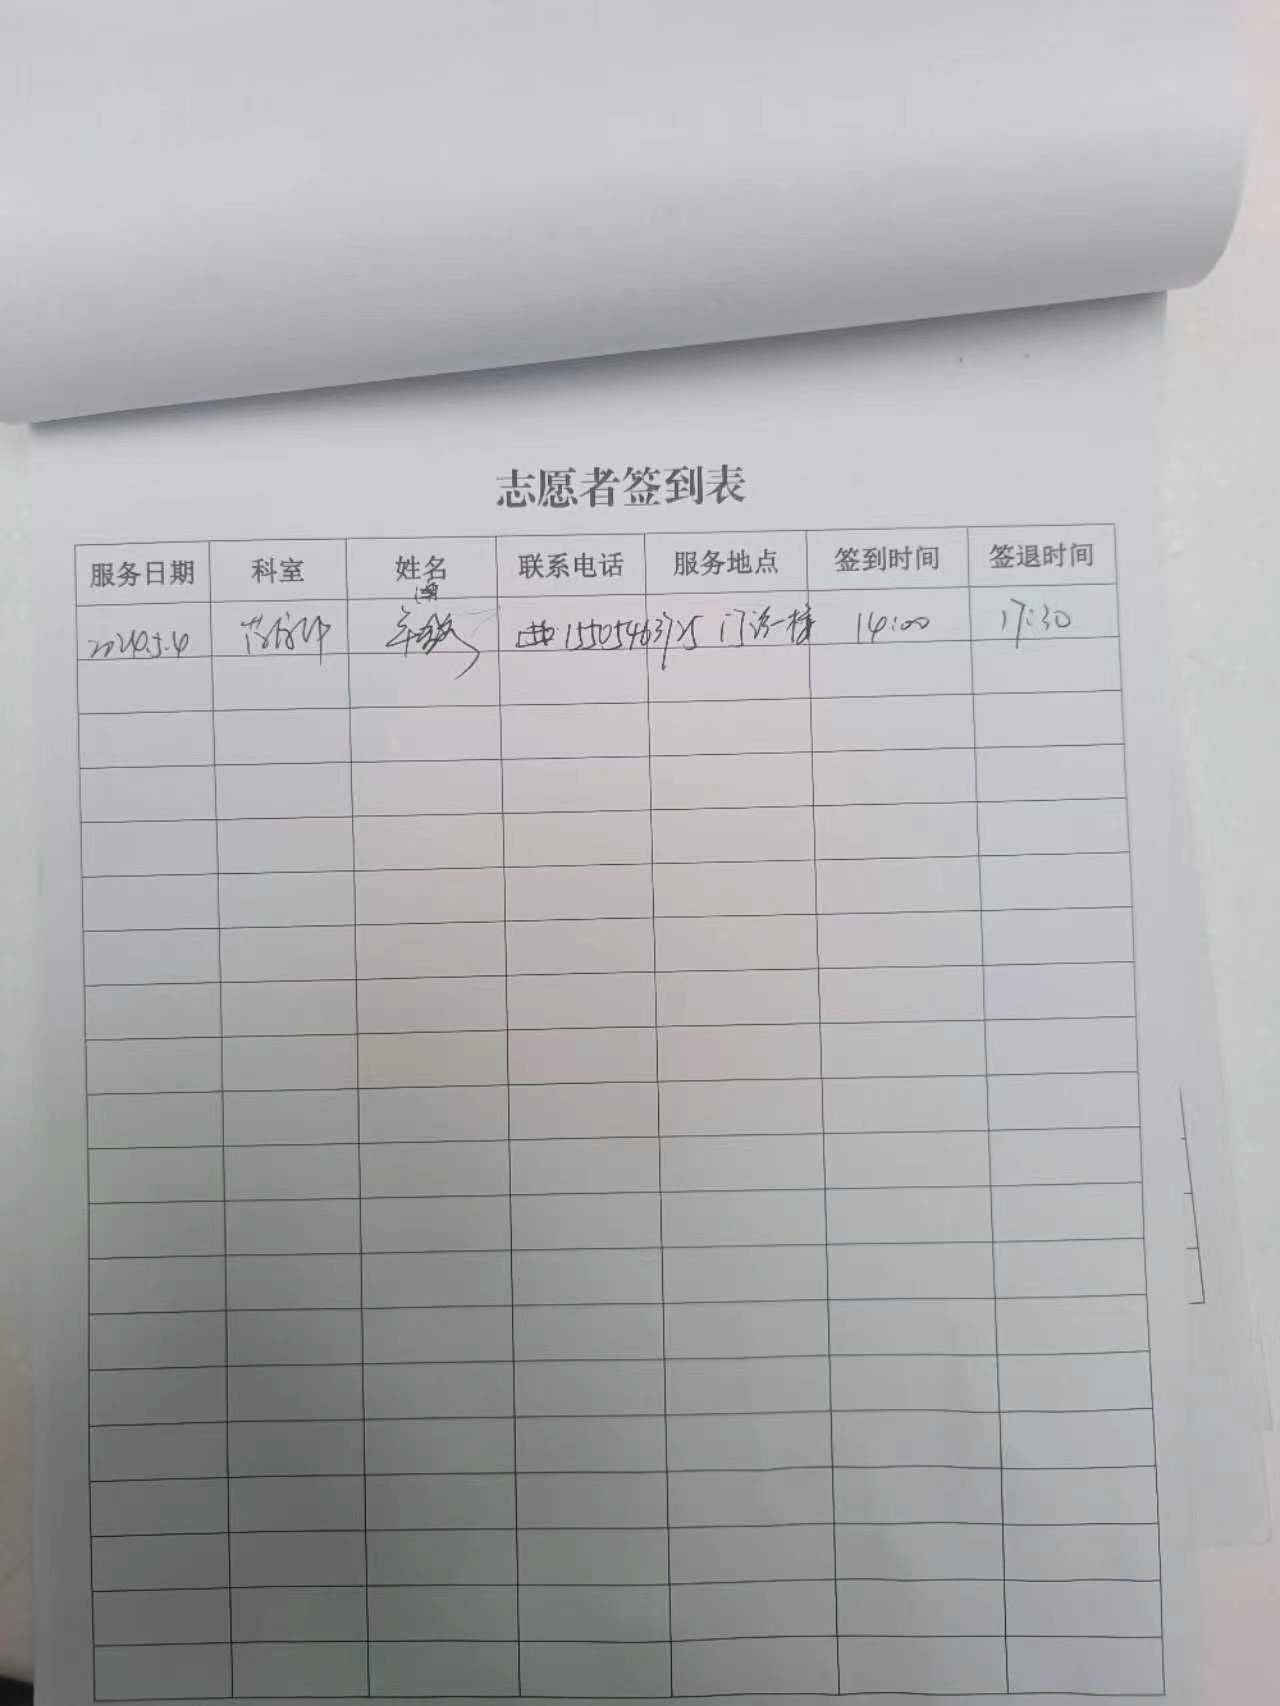 志愿者签到表
服务日期 科室 姓名 联系电话 服务地点 签到时间 签退时间
2024.5.4 15505463725 门诊一楼 14:00 17:30